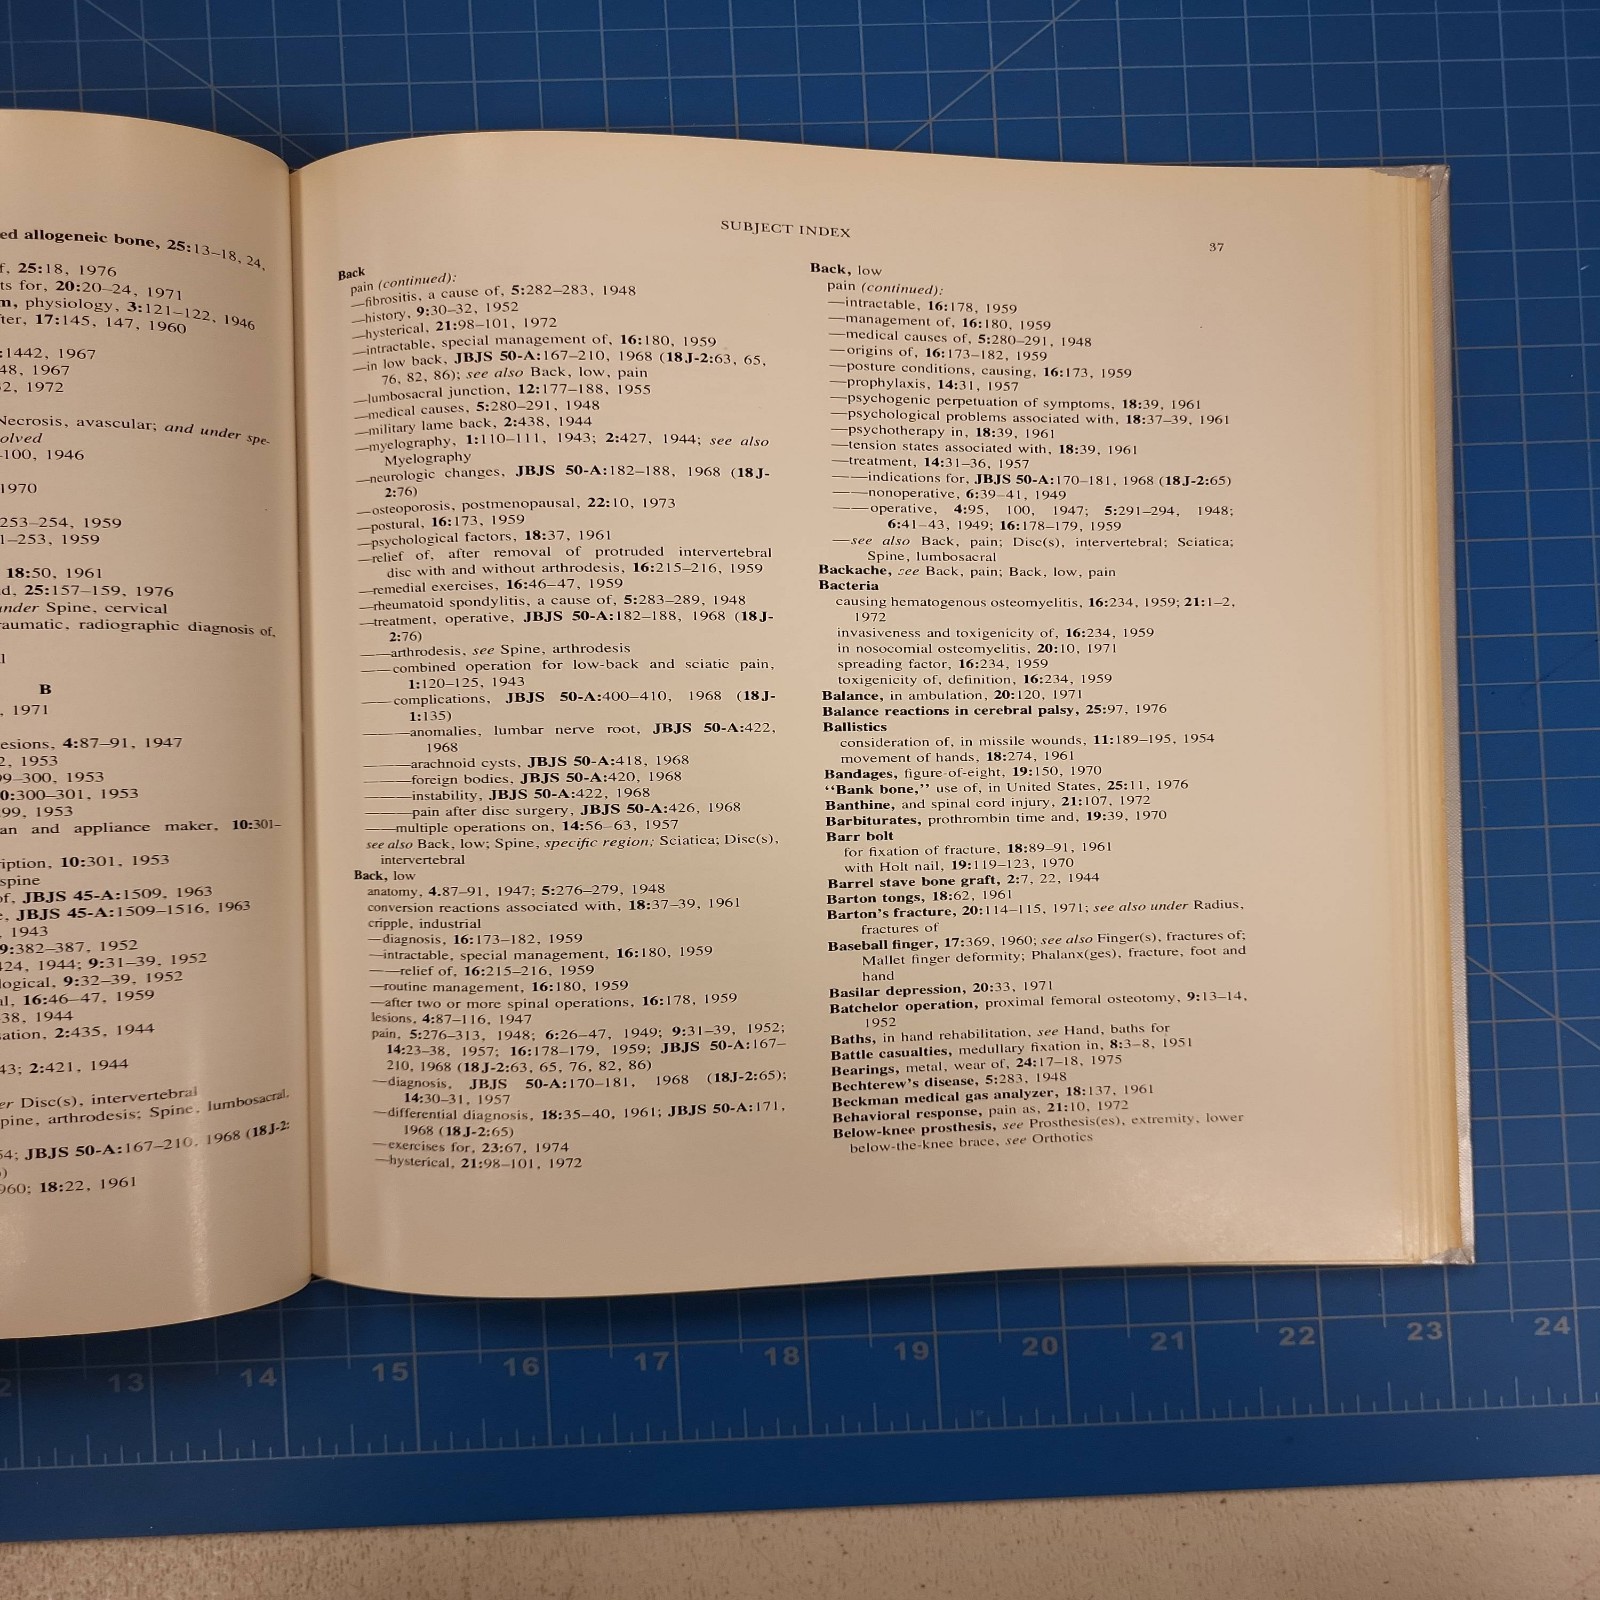 ed allogeneic bone, 25:13–18, 24,
f, 25:18, 1976
ts for, 20:20–24, 1971
m, physiology, 3:121–122, 1946
ter, 17:145, 147, 1960
:1442, 1967
48, 1967
2, 1972
Necrosis, avascular; and under spe-
olved
100, 1946
1970
253–254, 1959
1–253, 1959
18:50, 1961
d, 25:157–159, 1976
under Spine, cervical
raumatic, radiographic diagnosis of,
l
B
, 1971
esions, 4:87–91, 1947
2, 1953
99–300, 1953
0:300–301, 1953
99, 1953
an and appliance maker, 10:301–
iption, 10:301, 1953
spine
of, JBJS 45-A:1509, 1963
e, JBJS 45-A:1509–1516, 1963
, 1943
9:382–387, 1952
424, 1944; 9:31–39, 1952
logical, 9:32–39, 1952
al, 16:46–47, 1959
38, 1944
sation, 2:435, 1944
43; 2:421, 1944
er Disc(s), intervertebral
pine, arthrodesis; Spine, lumbosacral,
54; JBJS 50-A:167–210, 1968 (18J-2:
)
960; 18:22, 1961
SUBJECT INDEX
37
Back
pain (continued):
—fibrositis, a cause of, 5:282–283, 1948
—history, 9:30–32, 1952
—hysterical, 21:98–101, 1972
—intractable, special management of, 16:180, 1959
—in low back, JBJS 50-A:167–210, 1968 (18J-2:63, 65,
76, 82, 86); see also Back, low, pain
—lumbosacral junction, 12:177–188, 1955
—medical causes, 5:280–291, 1948
—military lame back, 2:438, 1944
—myelography, 1:110–111, 1943; 2:427, 1944; see also
Myelography
—neurologic changes, JBJS 50-A:182–188, 1968 (18J-
2:76)
—osteoporosis, postmenopausal, 22:10, 1973
—postural, 16:173, 1959
—psychological factors, 18:37, 1961
—relief of, after removal of protruded intervertebral
disc with and without arthrodesis, 16:215–216, 1959
—remedial exercises, 16:46–47, 1959
—rheumatoid spondylitis, a cause of, 5:283–289, 1948
—treatment, operative, JBJS 50-A:182–188, 1968 (18J-
2:76)
——arthrodesis, see Spine, arthrodesis
——combined operation for low-back and sciatic pain,
1:120–125, 1943
——complications, JBJS 50-A:400–410, 1968 (18J-
1:135)
———anomalies, lumbar nerve root, JBJS 50-A:422,
1968
———arachnoid cysts, JBJS 50-A:418, 1968
———foreign bodies, JBJS 50-A:420, 1968
———instability, JBJS 50-A:422, 1968
———pain after disc surgery, JBJS 50-A:426, 1968
——multiple operations on, 14:56–63, 1957
see also Back, low; Spine, specific region; Sciatica; Disc(s),
intervertebral
Back, low
anatomy, 4.87–91, 1947; 5:276–279, 1948
conversion reactions associated with, 18:37–39, 1961
cripple, industrial
—diagnosis, 16:173–182, 1959
—intractable, special management, 16:180, 1959
——relief of, 16:215–216, 1959
—routine management, 16:180, 1959
—after two or more spinal operations, 16:178, 1959
lesions, 4:87–116, 1947
pain, 5:276–313, 1948; 6:26–47, 1949; 9:31–39, 1952;
14:23–38, 1957; 16:178–179, 1959; JBJS 50-A:167–
210, 1968 (18J-2:63, 65, 76, 82, 86)
—diagnosis, JBJS 50-A:170–181, 1968 (18J-2:65);
14:30–31, 1957
—differential diagnosis, 18:35–40, 1961; JBJS 50-A:171,
1968 (18J-2:65)
—exercises for, 23:67, 1974
—hysterical, 21:98–101, 1972
Back, low
pain (continued):
—intractable, 16:178, 1959
—management of, 16:180, 1959
—medical causes of, 5:280–291, 1948
—origins of, 16:173–182, 1959
—posture conditions, causing, 16:173, 1959
—prophylaxis, 14:31, 1957
—psychogenic perpetuation of symptoms, 18:39, 1961
—psychological problems associated with, 18:37–39, 1961
—psychotherapy in, 18:39, 1961
—tension states associated with, 18:39, 1961
—treatment, 14:31–36, 1957
——indications for, JBJS 50-A:170–181, 1968 (18J-2:65)
——nonoperative, 6:39–41, 1949
——operative, 4:95, 100, 1947; 5:291–294, 1948;
6:41–43, 1949; 16:178–179, 1959
—see also Back, pain; Disc(s), intervertebral; Sciatica;
Spine, lumbosacral
Backache, see Back, pain; Back, low, pain
Bacteria
causing hematogenous osteomyelitis, 16:234, 1959; 21:1–2,
1972
invasiveness and toxigenicity of, 16:234, 1959
in nosocomial osteomyelitis, 20:10, 1971
spreading factor, 16:234, 1959
toxigenicity of, definition, 16:234, 1959
Balance, in ambulation, 20:120, 1971
Balance reactions in cerebral palsy, 25:97, 1976
Ballistics
consideration of, in missile wounds, 11:189–195, 1954
movement of hands, 18:274, 1961
Bandages, figure-of-eight, 19:150, 1970
“Bank bone,” use of, in United States, 25:11, 1976
Banthine, and spinal cord injury, 21:107, 1972
Barbiturates, prothrombin time and, 19:39, 1970
Barr bolt
for fixation of fracture, 18:89–91, 1961
with Holt nail, 19:119–123, 1970
Barrel stave bone graft, 2:7, 22, 1944
Barton tongs, 18:62, 1961
Barton's fracture, 20:114–115, 1971; see also under Radius,
fractures of
Baseball finger, 17:369, 1960; see also Finger(s), fractures of;
Mallet finger deformity; Phalanx(ges), fracture, foot and
hand
Basilar depression, 20:33, 1971
Batchelor operation, proximal femoral osteotomy, 9:13–14,
1952
Baths, in hand rehabilitation, see Hand, baths for
Battle casualties, medullary fixation in, 8:3–8, 1951
Bearings, metal, wear of, 24:17–18, 1975
Bechterew's disease, 5:283, 1948
Beckman medical gas analyzer, 18:137, 1961
Behavioral response, pain as, 21:10, 1972
Below-knee prosthesis, see Prosthesis(es), extremity, lower
below-the-knee brace, see Orthotics
2 13 14 15 16 17 18 19 20 21 22 23 24